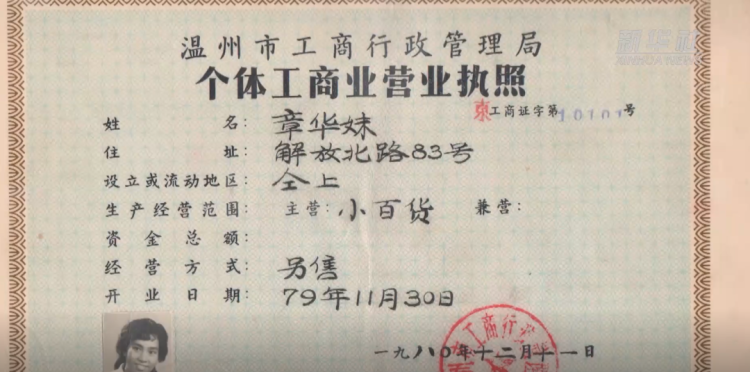 新华社
XINHUA NEWS
温州市工商行政管理局
个体工商业营业执照
东工商证字第10101号
姓名：章华妹
住址：解放北路83号
设立或流动地区：仝上
生产经营范围：主营：小百货 兼营：
资金总额：
经营方式：另售
开业日期：79年11月30日
一九八〇年十二月十一日
工商行政